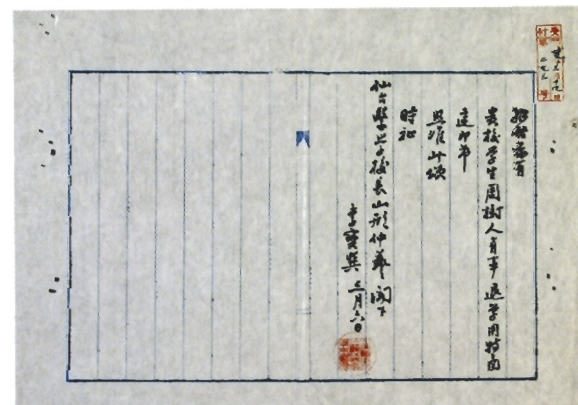 敬啓茲有
貴校学生周樹人有事退学用特函
達即希
照准此頌
時祉
仙台医学校長山形仲藝閣下
李寶巽 三月六日